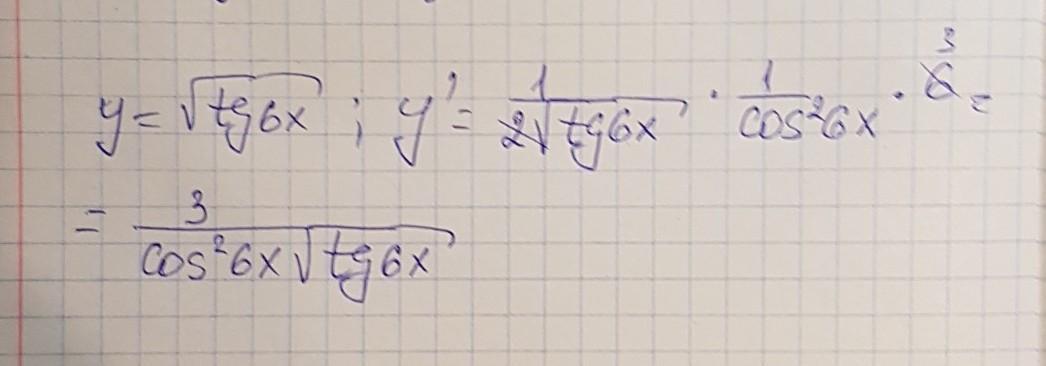 y = √tg6x ; y' = 1/(2√tg6x) · 1/cos²6x · 6 3 =
= 3/(cos²6x √tg6x)